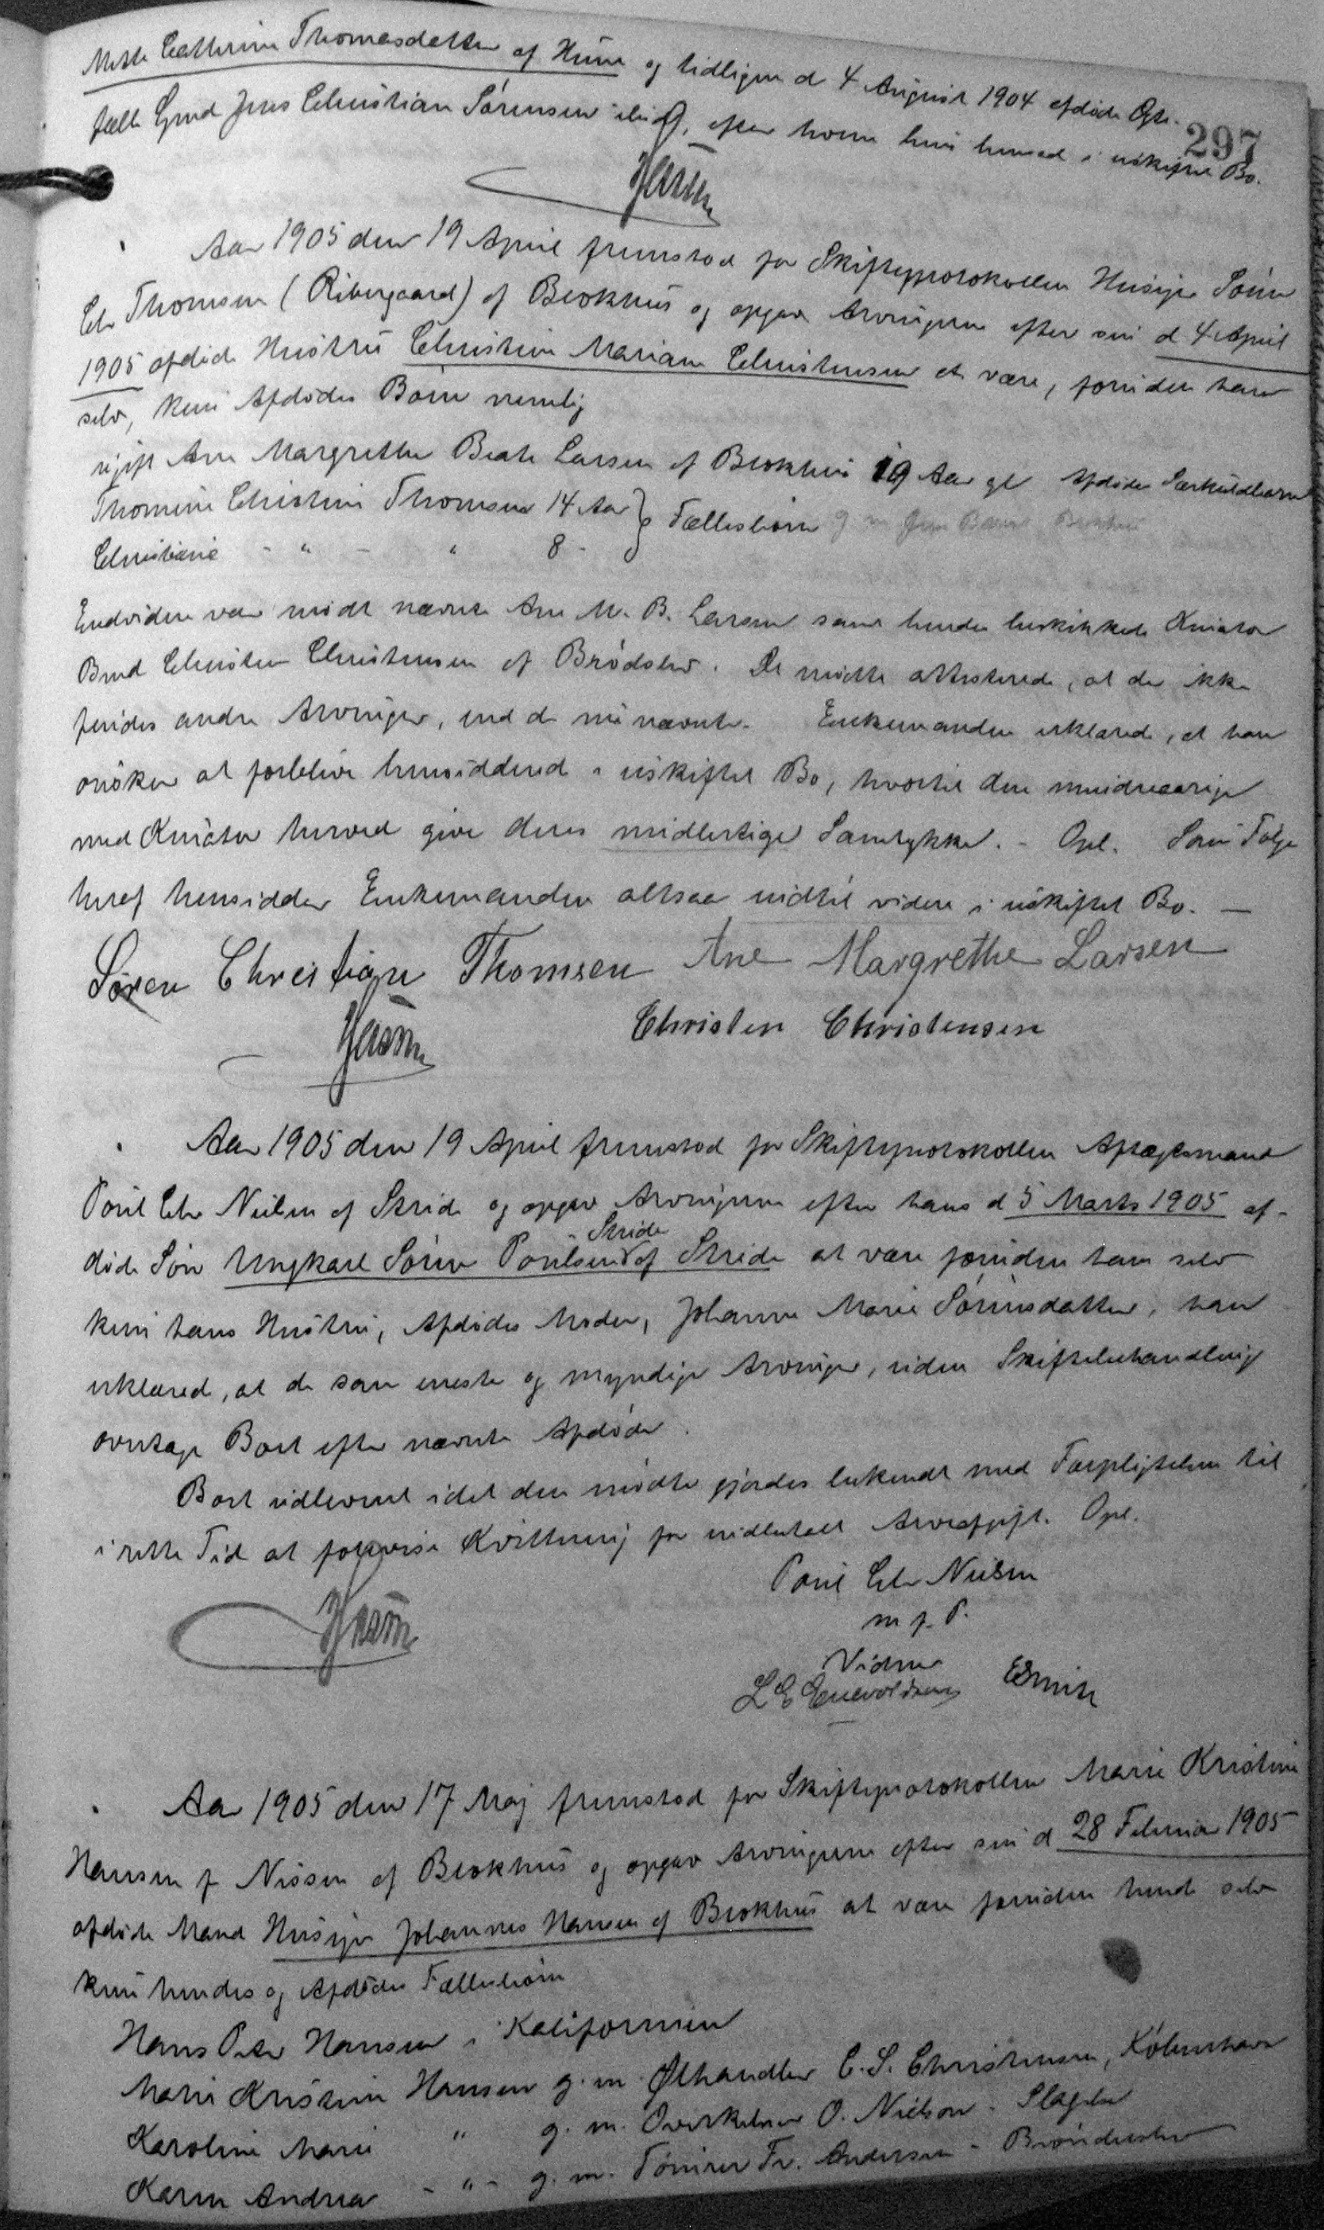 Mette Cathrine Thomasdatter af Hune og tidligere d 4 August 1904 afdøde Gte-
fælle Gmd Jens Christian Sørensen ibid, efter hvem hun hensad i uskiftet Bo.
297
Aar 1905 den 19 April fremstod for Skifteprotokollen Husejer Søren
Chr Thomsen (Ribergaard) af Blokhus og opgav Arvingerne efter sin d 4 April
1905 afdøde Hustru Christine Mariane Christensen at være, foruden ham
selv, kun Afdødes Børn nemlig
ugift Ane Margrethe Beate Larsen af Blokhus 19 Aar gl Afdødes Særkuldbarn
Thomine Christine Thomsen 14 Aar } Fællesbørn
Christiane - " - " 8 -
Endvidere var mødt nævnte Ane M. B. Larsen samt hendes beskikkede Kurator
Bmd Christen Christensen af Brødslev. De mødte attesterede, at der ikke
findes andre Arvinger, end de nu nævnte. Enkemanden erklærede, at han
ønsker at forblive hensiddend i uskiftet Bo, hvortil den mindreaarige
med Kurator herved give deres midlertige Samtykke. - Opl. Som Følge
heraf hensidder Enkemanden altsaa indtil videre i uskiftet Bo. —
Søren Christian Thomsen Ane Margrethe Larsen
Christen Christensen
Aar 1905 den 19 April fremstod for Skifteprotokollen Aftægtsmand
Poul Chr Nielsen af Stride og opgav Arvingerne efter hans d 5 Marts 1905 af-
Stride
døde Søn Ungkarl Søren Poulsen af Stride at være foruden ham selv
kun hans Hustru, Afdødes Moder, Johanne Marie Sørensdatter, han
erklæred, at de som eneste og myndige Arvinger, uden Skiftebehandling
overtage Boet efter nævnte Afdøde.
Boet udleveret idet den mødte gjordes bekendt med Forpligtelsen til
i rette Tid at forevise Kvittering for indbetalt Arveafgift. Opl.
Poul Chr Nielsen
m f. P.
Vidner
L E Enevoldsen ESmith
Aar 1905 den 17 Maj fremstod for Skifteprotokollen Marie Kristine
Hansen f Nissen af Blokhus og opgav Arvingerne efter sin d 28 Februar 1905
afdøde Mand Husejer Johannes Hansen af Blokhus at være foruden hende selv
kun hendes og Afdødes Fællesbørn
Hans Peter Hansen i Kalifornien
Marie Kristine Hansen g. m. Ølhandler C. S. Christensen, København
Karoline Marie " g. m. Overkelner O. Nielsen - Slagelse
Karen Andrea - " - g. m. Tømrer Fr. Andersen - Brønderslev